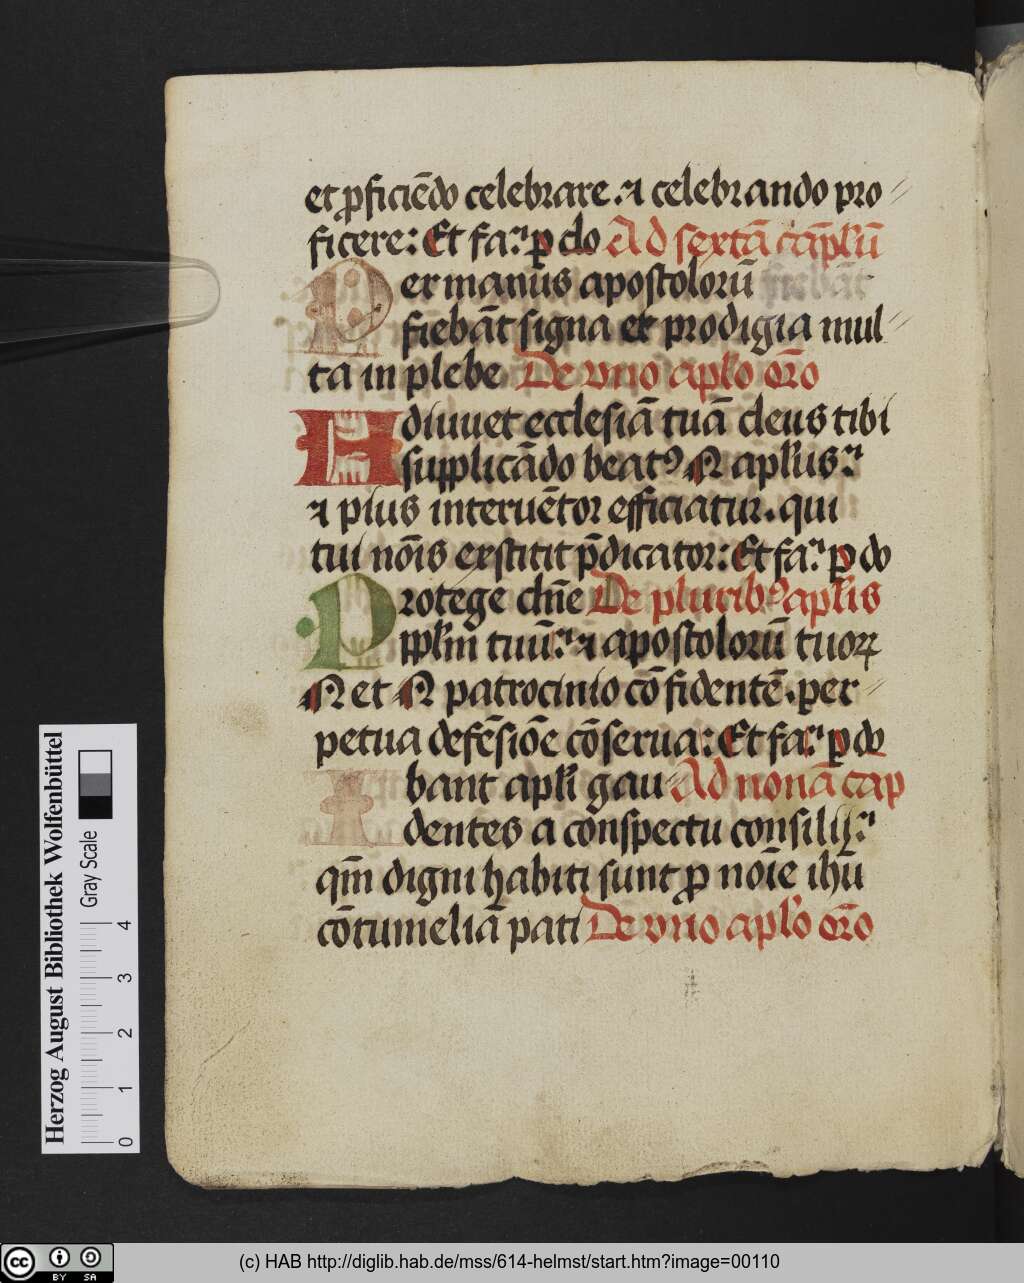 et ꝓficiēdo celebrare .⁊ celebrando pro⸗
ficere: Et fa.ꝛ ꝑ do Ad sextā cāpłm
Per manus apostolorū
fiebāt signa et prodigia mul⸗
ta in plebe De vno apło oro
Adiuuet ecclesiā tuā deus tibi
supplicādo beatꝰ N apłus.ꝛ
⁊ pius interuētor efficiatur. qui
tui nōis exstitit p̄dicator: Et fa.ꝛ ꝑ do
Protege dn̄e De pluribꝰ apłis
ppłm tuū.ꝛ ⁊ apostolorū tuoꝝ
N et N patrocinio cōfidentē. per⸗
petua defēsiōe cōserua: Et fa.ꝛ ꝑ do
Ibant apłi gau⸗ Ad nonā cap
dentes a conspectu consilij.ꝛ
qm̄ digni habiti sunt ꝓ noīe ihū
cōtumeliā pati De vno apło oro
Herzog August Bibliothek Wolfenbüttel
Gray Scale
0 1 2 3 4
cc BY SA
(c) HAB http://diglib.hab.de/mss/614-helmst/start.htm?image=00110